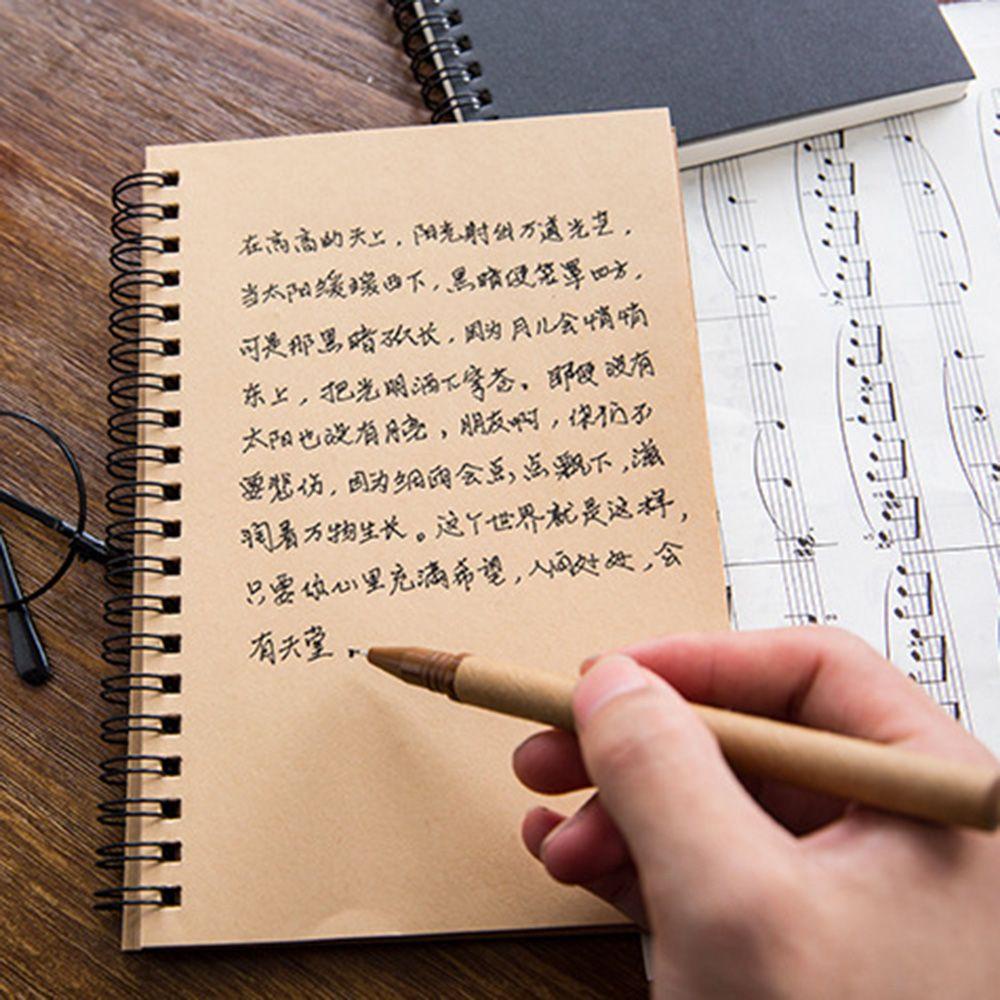 在高高的天上，阳光射出万道光芒，
当太阳缓缓西下，黑暗便笼罩四方，
可是那黑暗不久长，因为月儿会悄悄
东上，把光明洒下穹苍。即使没有
太阳也没有月亮，朋友啊，你们不
要悲伤，因为细雨会点点飘下，滋
润着万物生长。这个世界就是这样，
只要你心里充满希望，人间处处，会
有天堂。